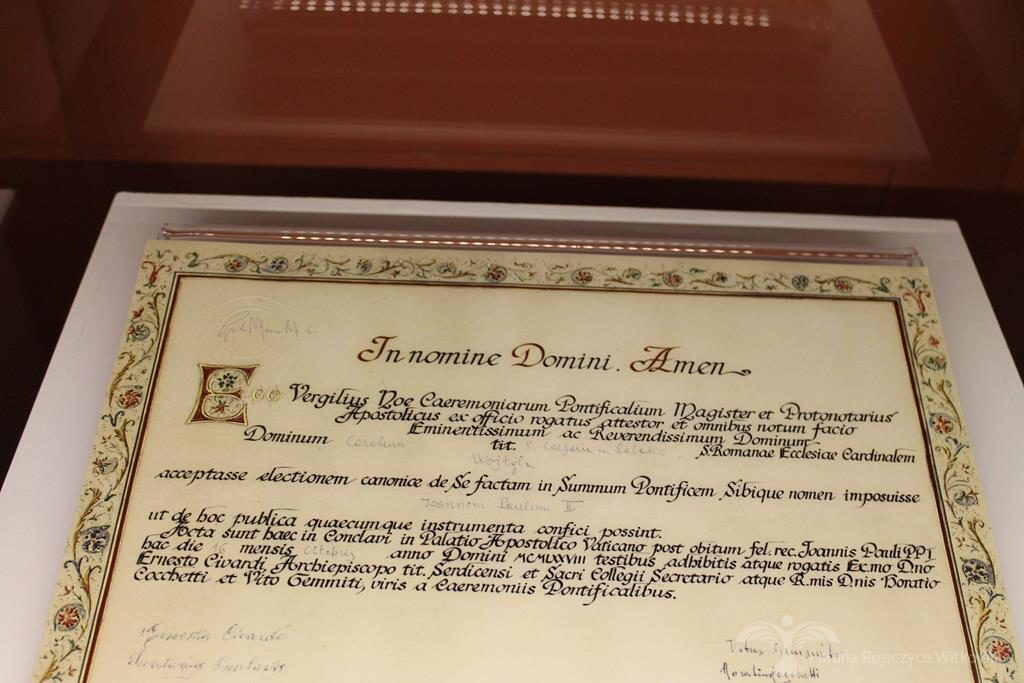 In nomine Domini. Amen
Ego Vergilius Noe Caeremoniarum Pontificalium Magister et Protonotarius
Apostolicus ex officio rogatus attestor et omnibus notum facio
Eminentissimum ac Reverendissimum Dominum
Dominum Carolum tit. S. Caesarii in Palatio S. Romanae Ecclesiae Cardinalem
Wojtyła
acceptasse electionem canonice de Se factam in Summum Pontificem Sibique nomen imposuisse
Ioannem Paulum II
ut de hoc publica quaecumque instrumenta confici possint.
Acta sunt haec in Conclavi in Palatio Apostolico Vaticano post obitum fel. rec. Joannis Pauli PP I
hac die 16 mensis octobris anno Domini MCMLXXVIII testibus adhibitis atque rogatis Exc.mo D.no
Ernesto Civardi, Archiepiscopo tit. Serdicensi et Sacri Collegii Secretario atque R.mis D.nis Horatio
Cocchetti et Vito Gemmiti, viris a Caeremoniis Pontificalibus.
Ernestus Civardi
Secretarius Conclavis
Vitus Gemmiti
Horatius Cocchetti
Parafia Ropczyce Witkowice